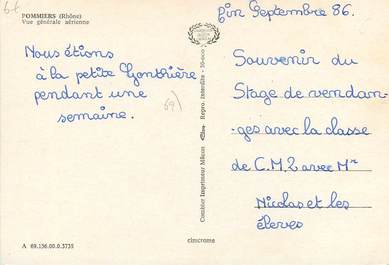 66
POMMIERS (Rhône)
Vue générale aérienne
Nous étions
à la petite Gonthière
pendant une
semaine.
69)
A 69.156.00.0.3735
Combier Imprimeur Mâcon
Repro. interdite - 30-000
cimcrome
fin Septembre 86.
Souvenir du
Stage de vendan-
-ges avec la classe
de C.M.2 avec Mr
Nicolas et les
éleves